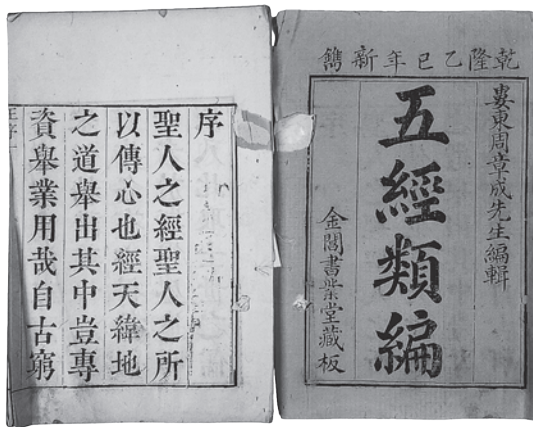 乾隆乙巳年新鐫
婁東周章成先生編輯
五經類編
金閶書業堂藏板
序
聖人之經聖人之所
以傳心也經天緯地
之道舉出其中豈專
資舉業用哉自古窮